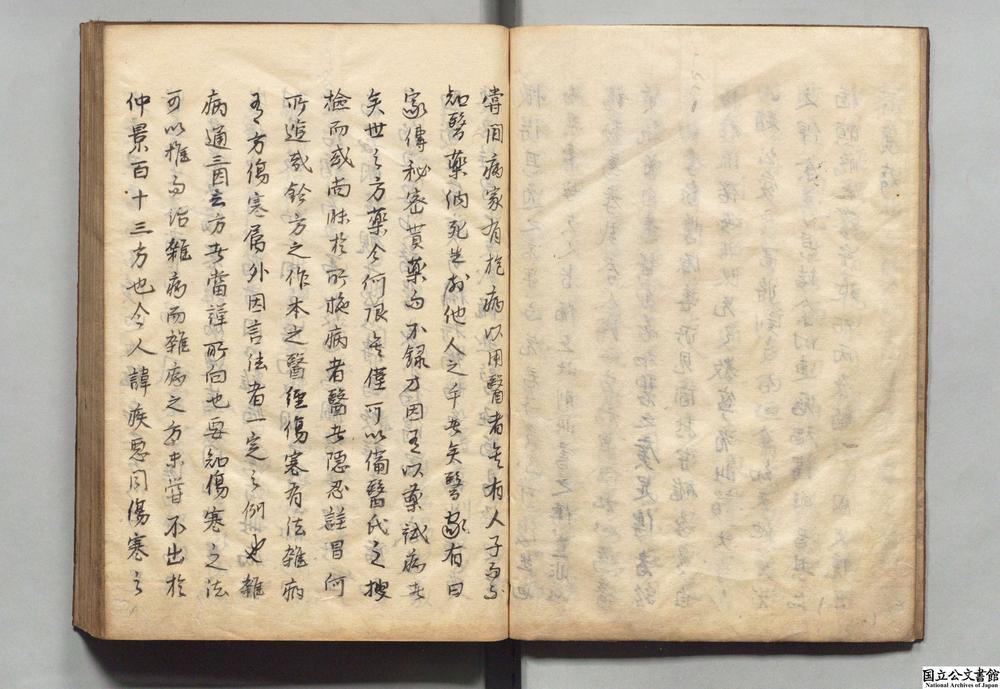 嘗聞病家有抱病以用醫者矣有人子而不
知醫藥納死生於他人之手者矣醫家有曰
家傳秘密貨藥而不録方因有以藥試病者
矣世之方藥今何限哉僅可以備醫氏之搜
檢而或尚昧於所施病者醫者隠忍詿冒何
所追哉於方之作本之醫經傷寒有法雜病
有方傷寒屬外因言法者一定之例也雜
病通三因言方者當譯所向也毋知傷寒之法
可以推而治雜病而雜病之方未嘗不出於
仲景百十三方也今人諱疾惡聞傷寒之
国立公文書館
National Archives of Japan